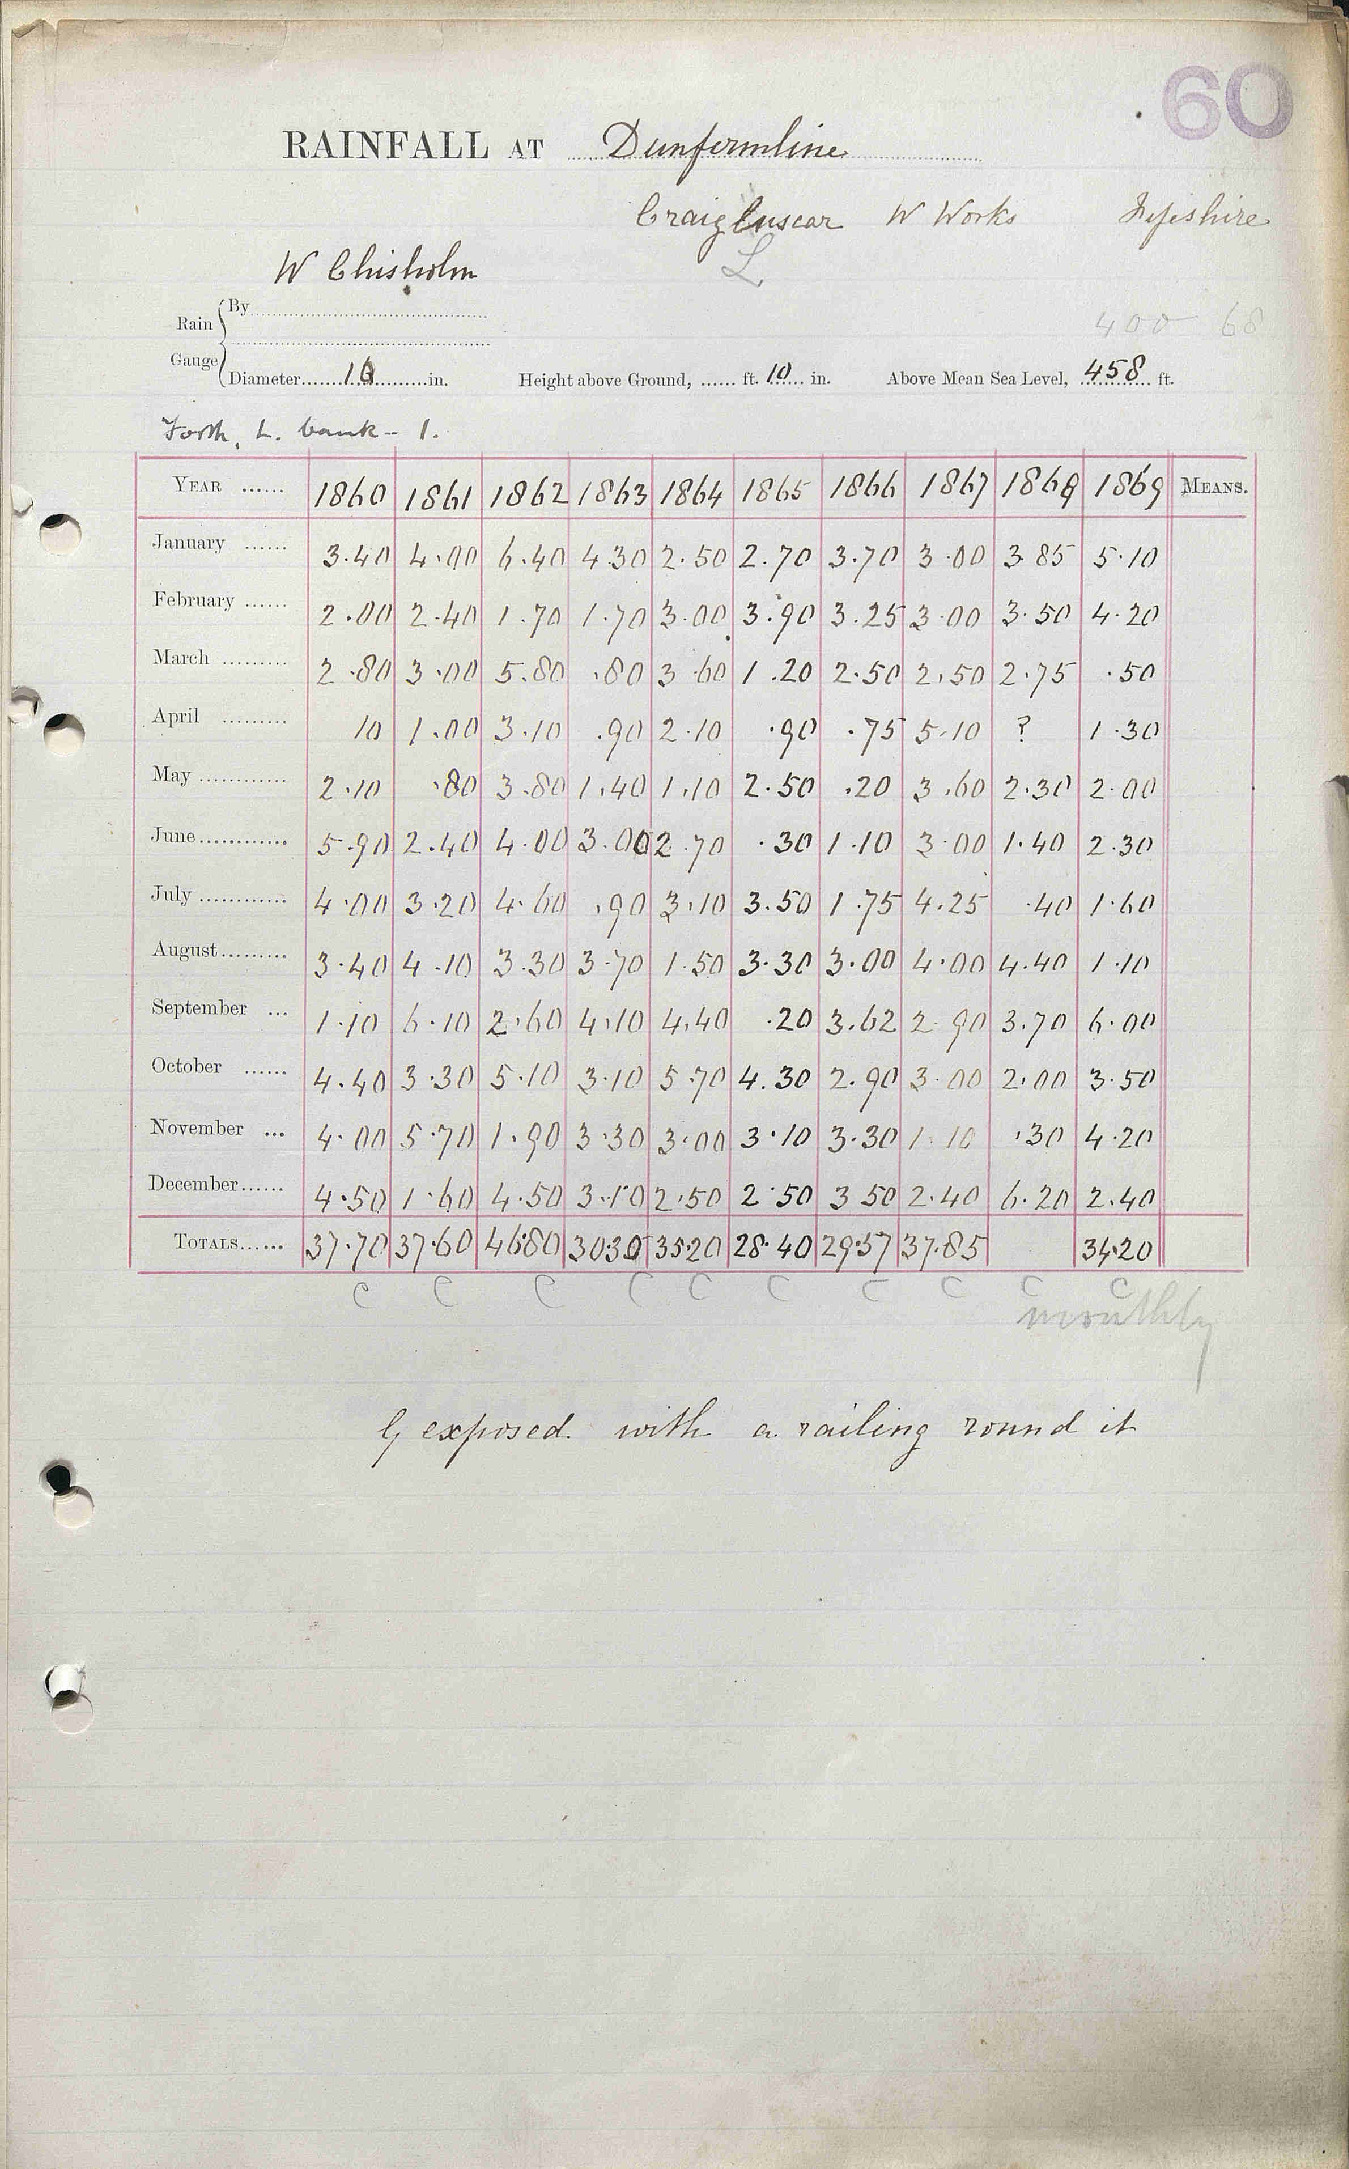 60
RAINFALL AT Dunfermline
Craigluscar W Works Fifeshire
L
W Chisholm
Rain Gauge { By
400 68
Diameter in. Height above Ground, ...... ft. 10 in. Above Mean Sea Level, 458 ft.
Forth, L. bank - 1.
YEAR ...... 1860 1861 1862 1863 1864 1865 1866 1867 1868 1869 MEANS.
January ...... 3.40 4.00 6.40 4.30 2.50 2.70 3.70 3.00 3.85 5.10
February ...... 2.00 2.40 1.70 1.70 3.00 3.90 3.25 3.00 3.50 4.20
March ......... 2.80 3.00 5.80 .80 3.60 1.20 2.50 2.50 2.75 .50
April ......... 10 1.00 3.10 .90 2.10 .90 .75 5.10 ? 1.30
May ............ 2.10 .80 3.80 1.40 1.10 2.50 .20 3.60 2.30 2.00
June ............ 5.90 2.40 4.00 3.00 2.70 .30 1.10 3.00 1.40 2.30
July ............ 4.00 3.20 4.60 .90 3.10 3.50 1.75 4.25 .40 1.60
August ......... 3.40 4.10 3.30 3.70 1.50 3.30 3.00 4.00 4.40 1.10
September ... 1.10 6.10 2.60 4.10 4.40 .20 3.62 2.90 3.70 6.00
October ...... 4.40 3.30 5.10 3.10 5.70 4.30 2.90 3.00 2.00 3.50
November ... 4.00 5.70 1.90 3.30 3.00 3.10 3.30 1.10 .30 4.20
December ...... 4.50 1.60 4.50 3.10 2.50 2.50 3.50 2.40 6.20 2.40
TOTALS ...... 37.70 37.60 46.80 30.30 35.20 28.40 29.57 37.85 34.20
C C C C C C C C C C
monthly
G exposed with a railing round it